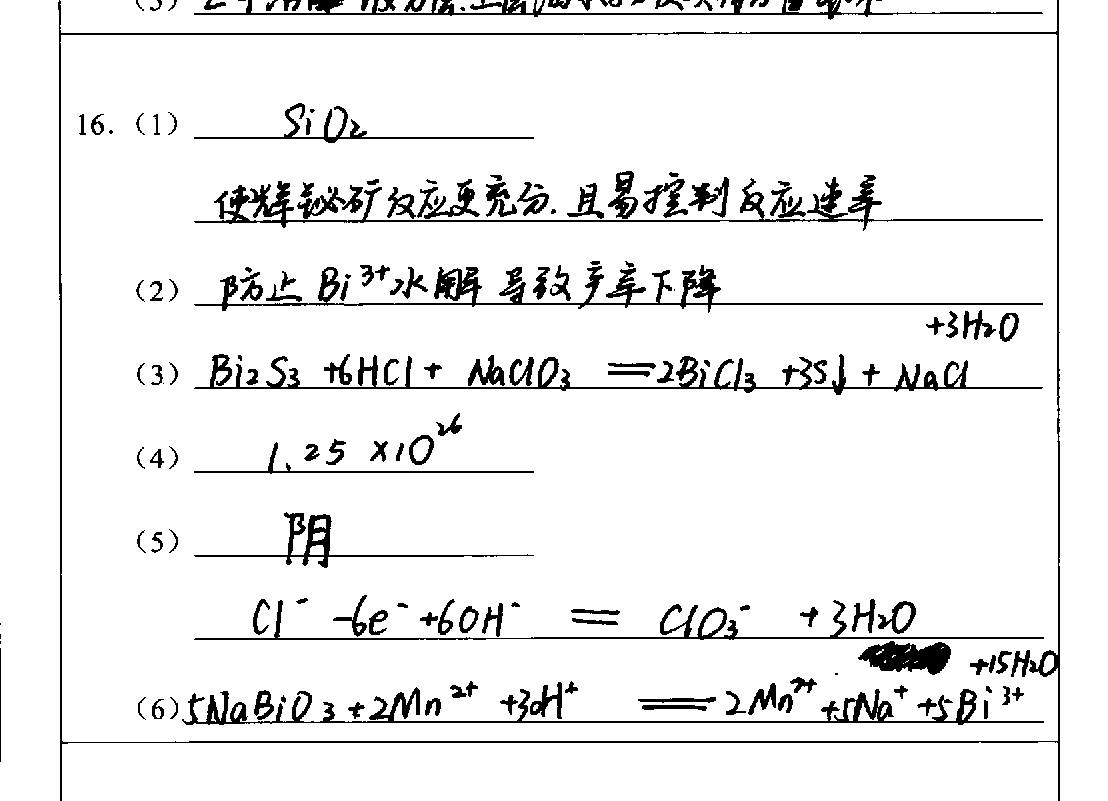 16.（1） SiO₂
使辉铋矿反应更充分.且易控制反应速率
（2） 防止 Bi³⁺水解 导致产率下降
+3H₂O
（3） Bi₂S₃ +6HCl + NaClO₃ ══2BiCl₃ +3S↓ + NaCl
（4） 1.25 ×10²⁶
（5） 阴
Cl⁻ -6e⁻ +6OH⁻ ══ ClO₃⁻ +3H₂O
+15H₂O
（6）5NaBiO₃ +2Mn²⁺ +30H⁺ ══ 2Mn⁷⁺ +5Na⁺ +5Bi³⁺